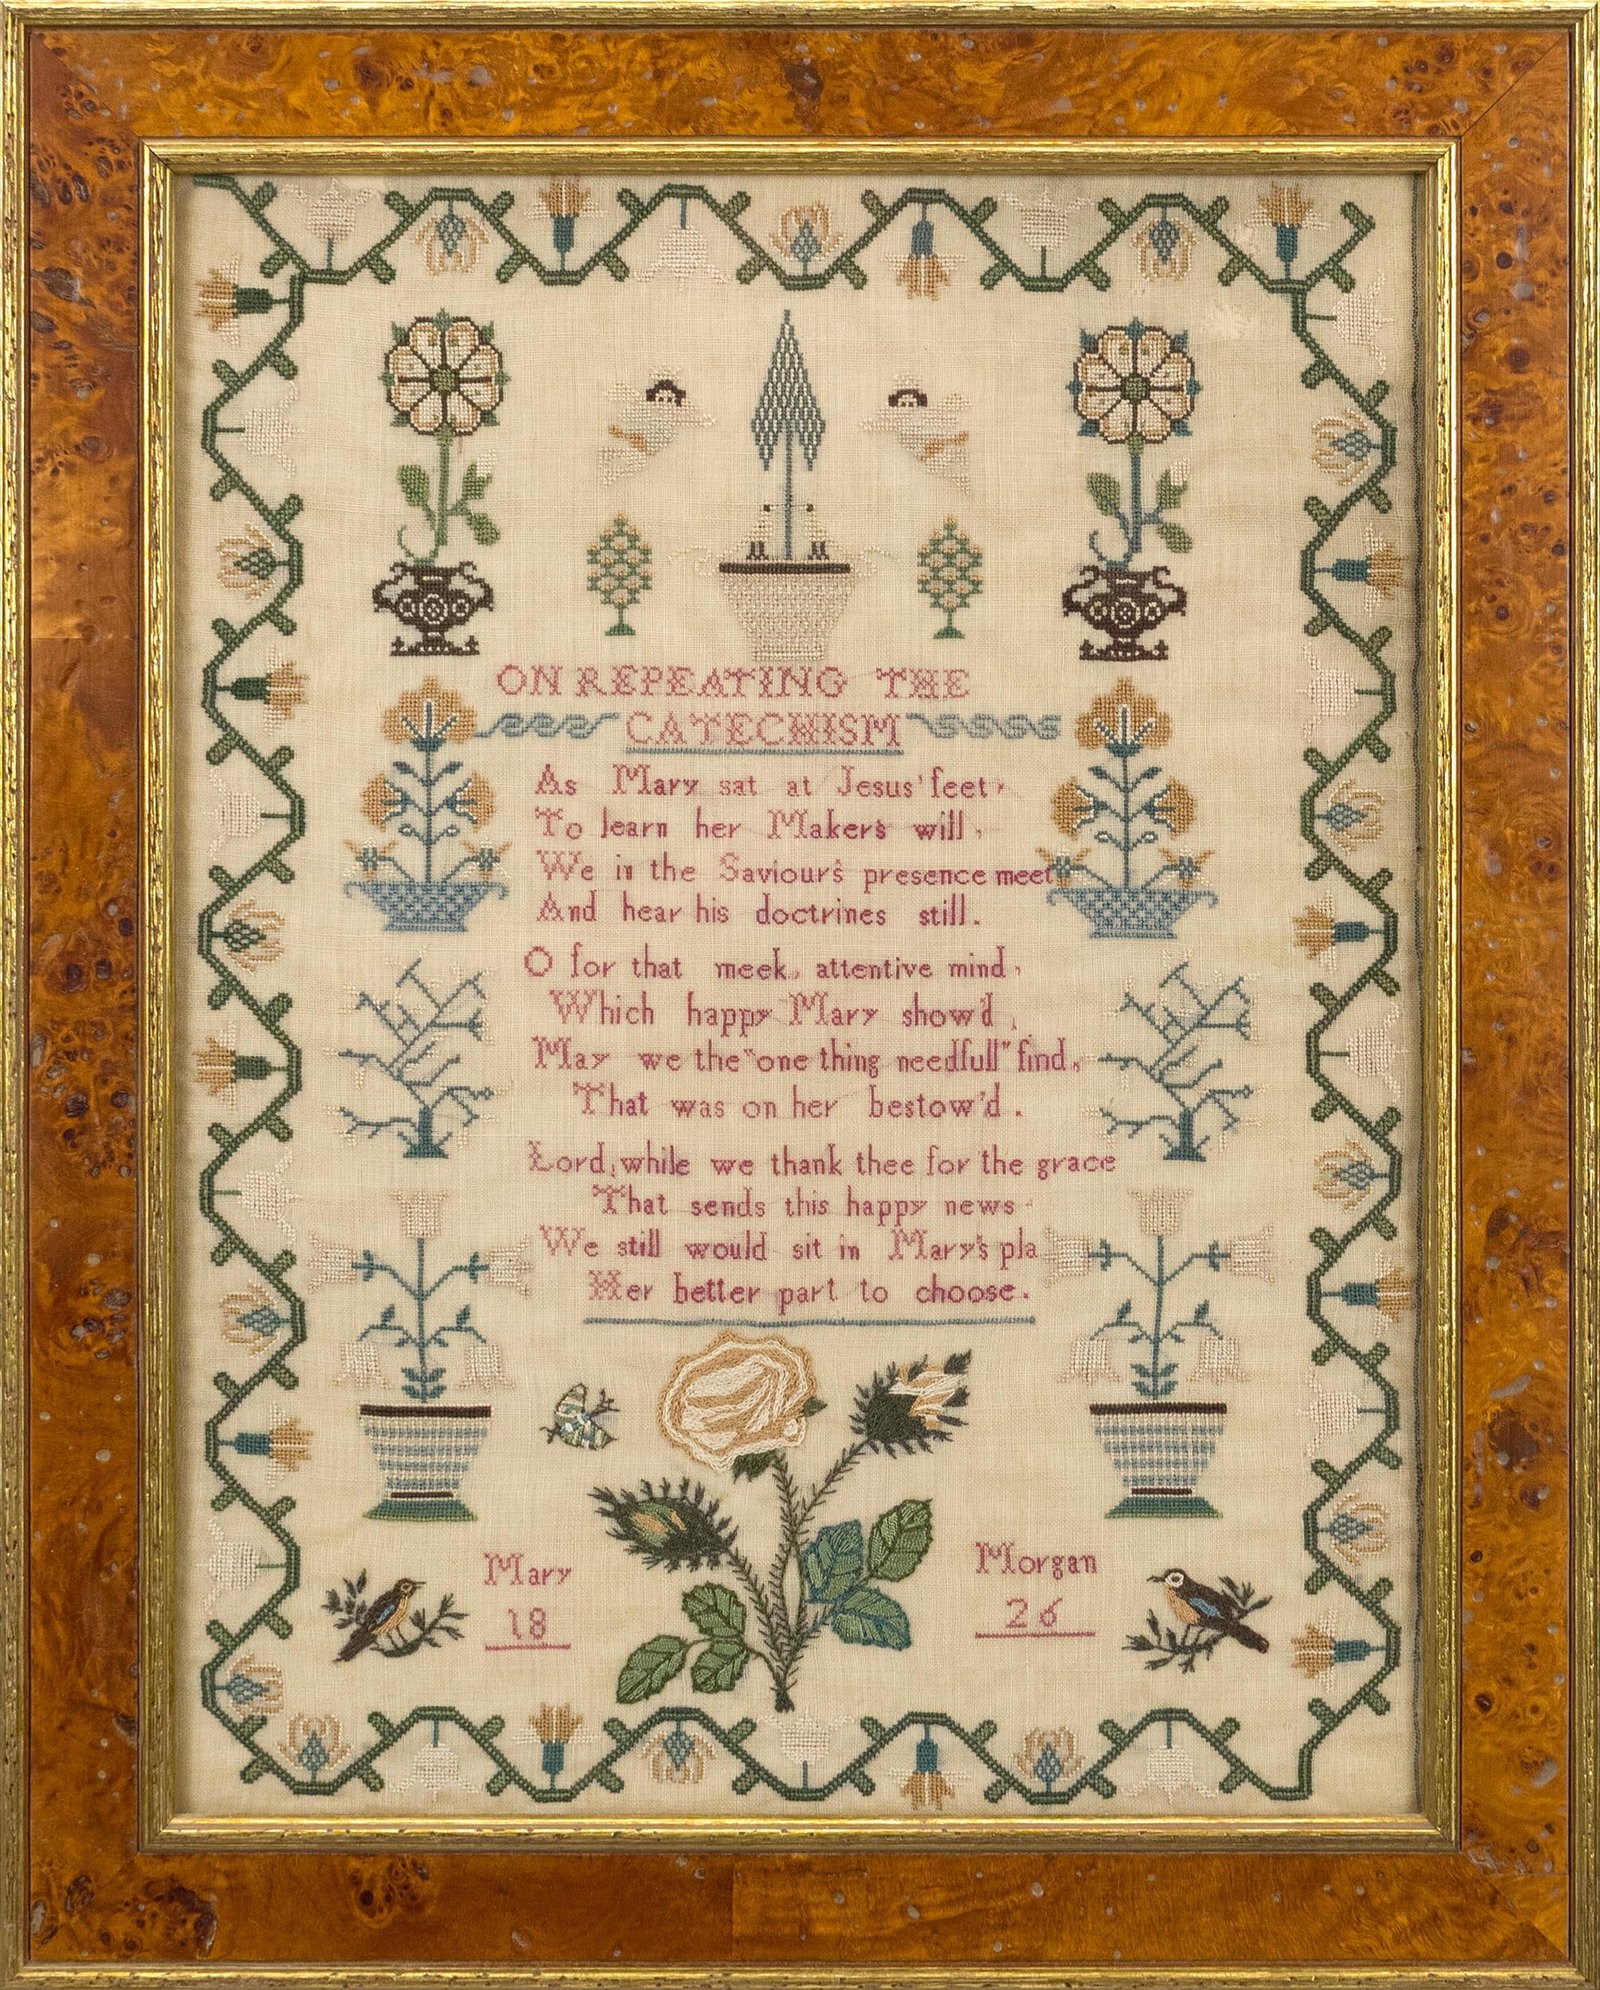 ON REPEATING THE
CATECHISM
As Mary sat at Jesus' feet,
To learn her Maker's will,
We in the Saviour's presence meet
And hear his doctrines still.
O for that meek, attentive mind,
Which happy Mary show'd,
May we the "one thing needfull" find,
That was on her bestow'd.
Lord, while we thank thee for the grace
That sends this happy news
We still would sit in Mary's pla
Her better part to choose.
Mary Morgan
18 26